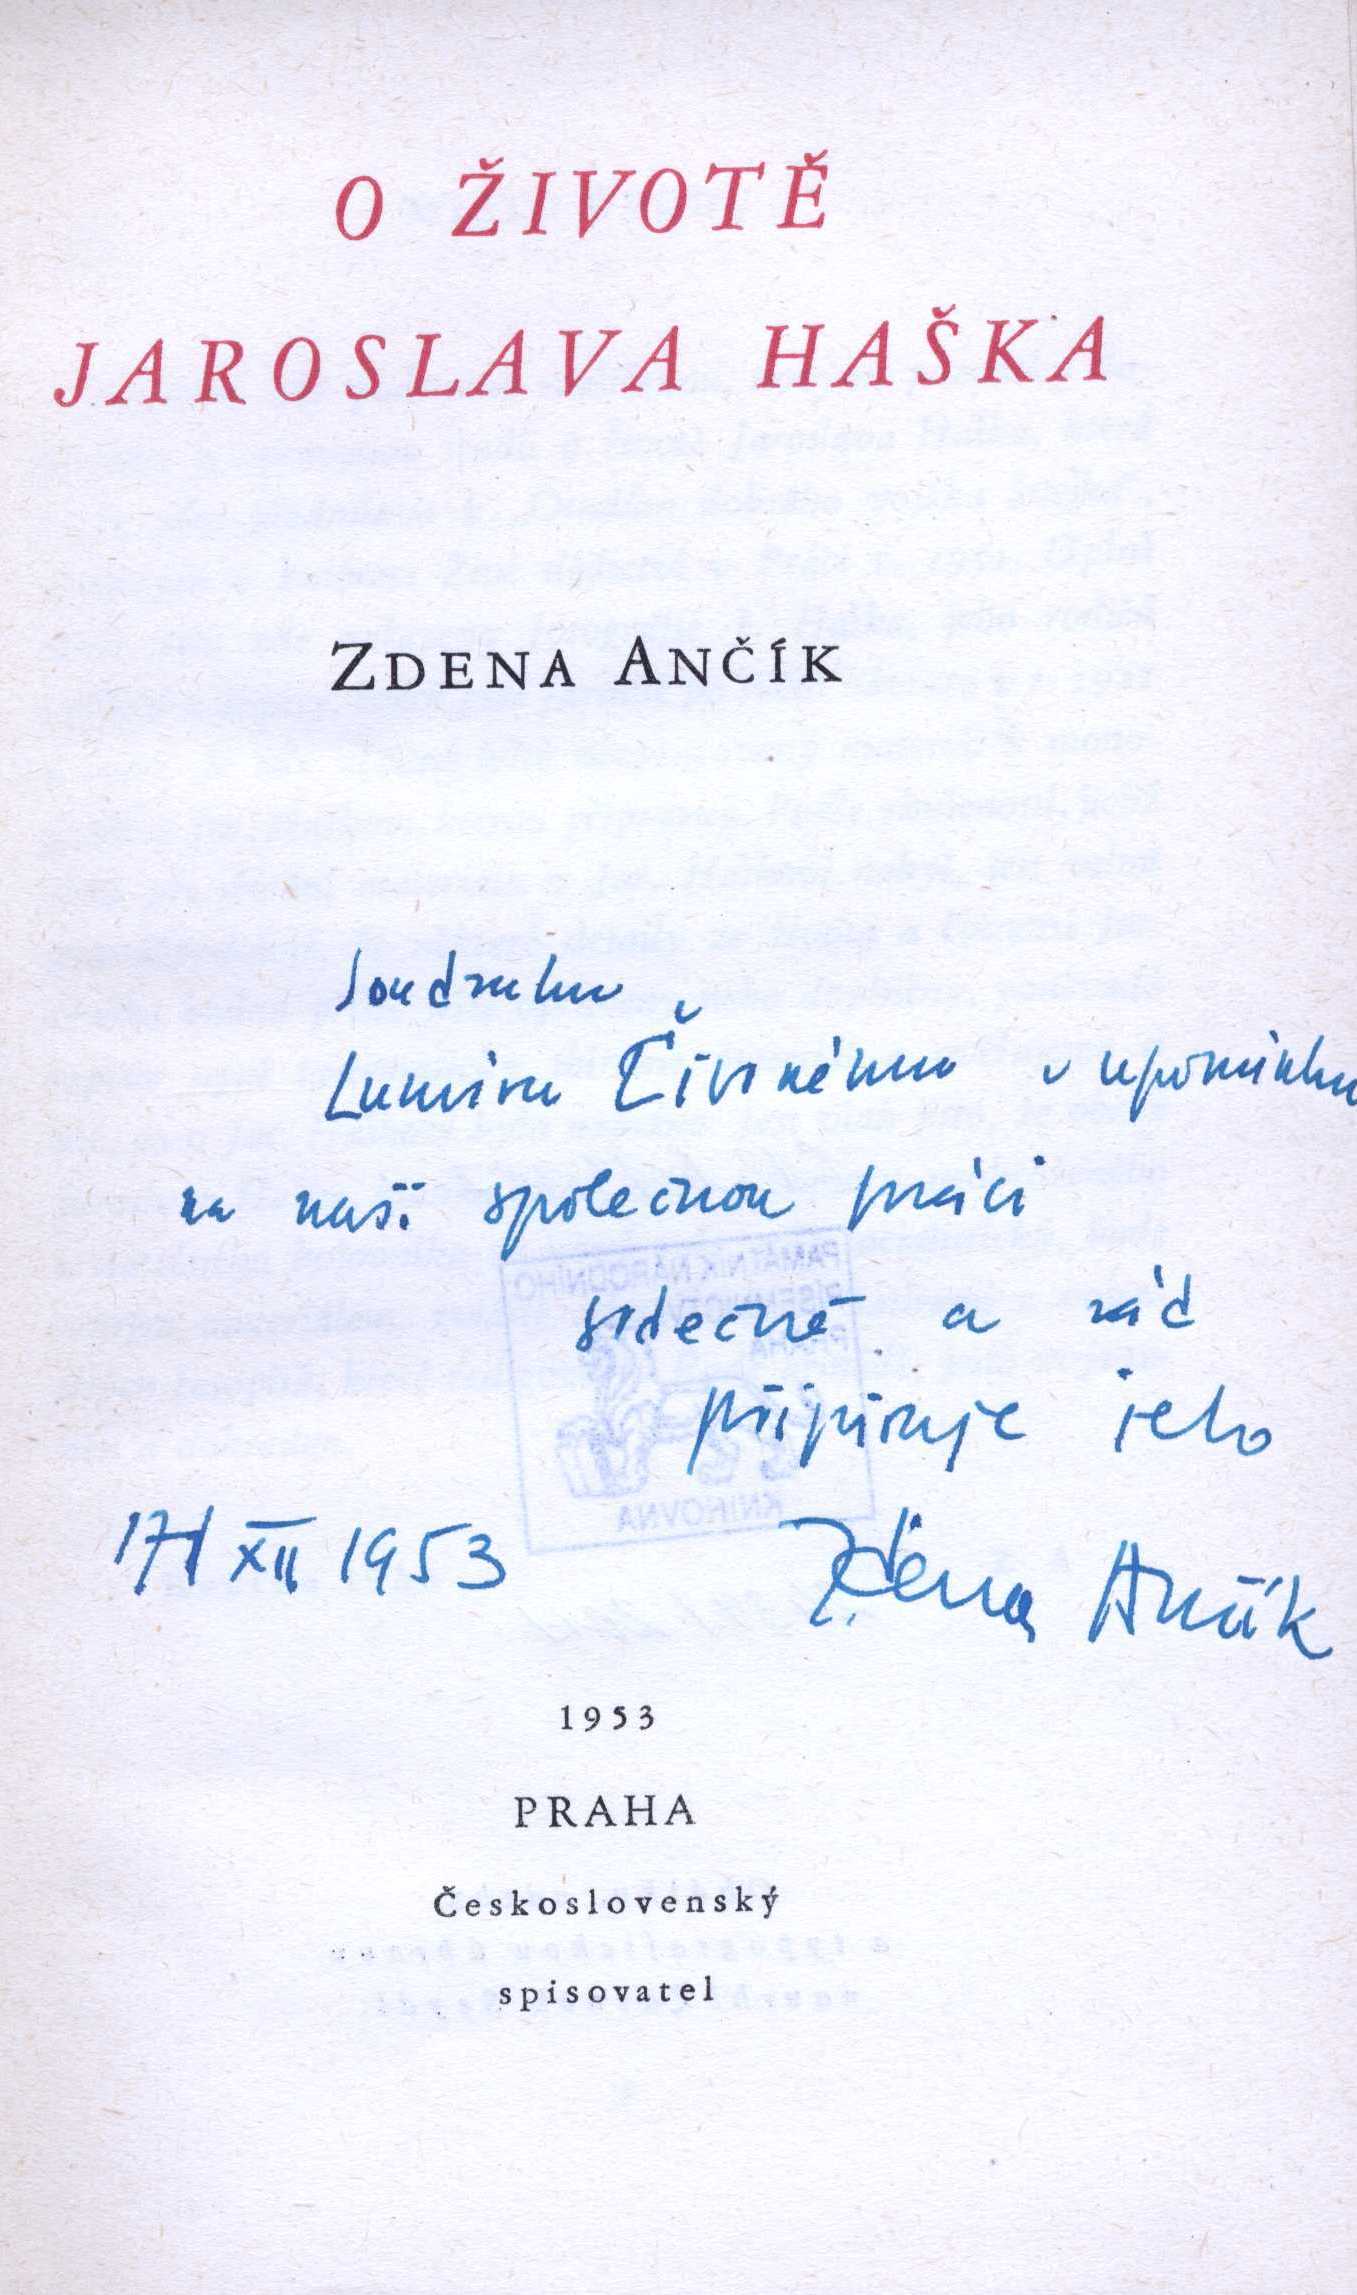 O ŽIVOTĚ
JAROSLAVA HAŠKA
ZDENA ANČÍK
Soudruhu
Lumíru Čivrnému v upomínku
na naši společnou práci
srdečně a rád
připisuje jeho
17/XII 1953 Zdena Ančík
PAMÁTNÍK NÁRODNÍHO
PÍSEMNICTVÍ
PRAHA
KNIHOVNA
1953
PRAHA
Československý
spisovatel